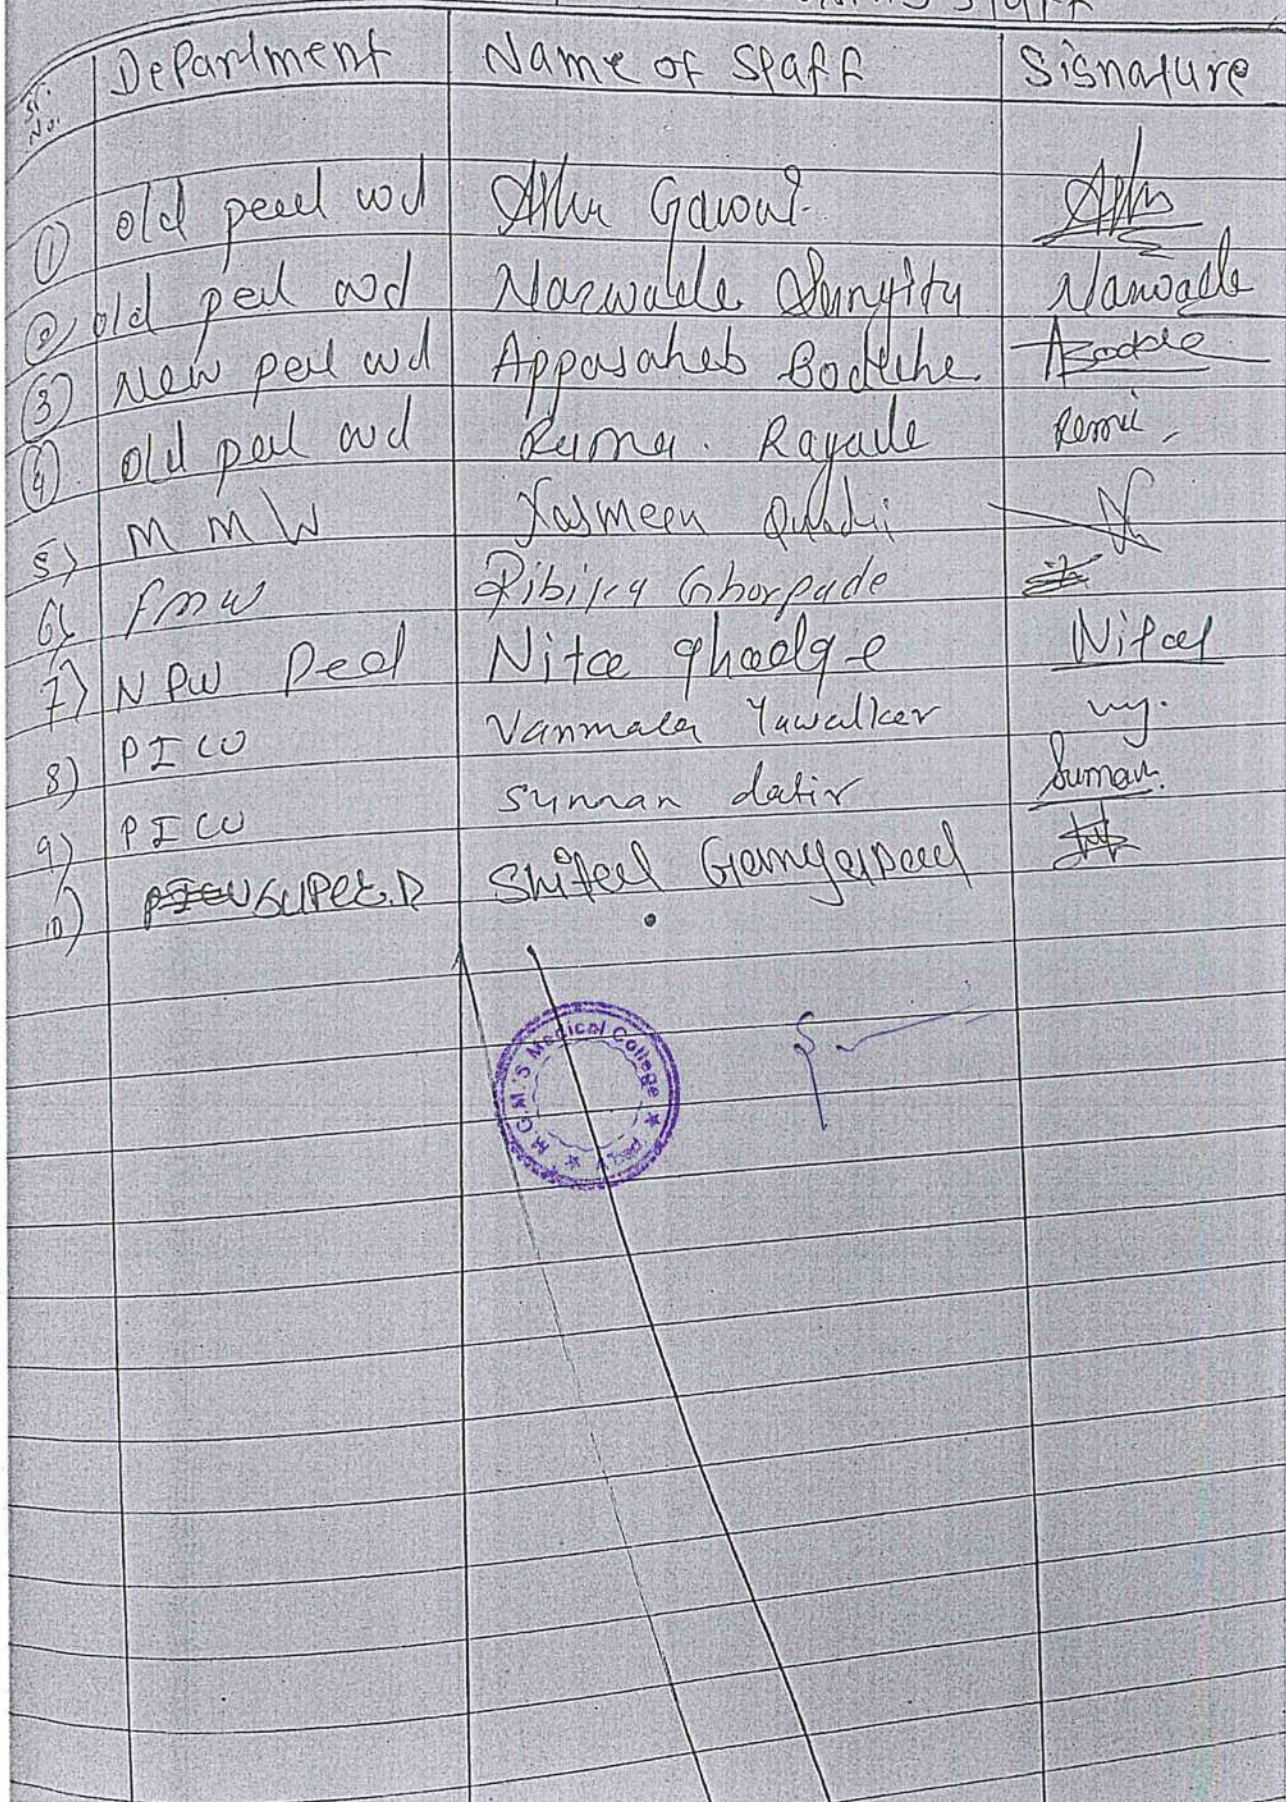 Staff
Sr. No. Department Name of Spaff Signature
① old peed wd Gawai
② old ped wd Narwade Sungita Narwade
③ New ped wd Appasaheb Bodkhe ABodkhe
④ old ped wd Ruma. Rayade
5) M M W Yasmeen Quadri
6) FMW Ribika Ghorpade
7) N PW Ped Nita ghadge Nita
8) PICU Vanmala Yawalker vy.
9) PICU Suman datir Suman
10) SUPER.D Shital Gangapad
M.G.M.'S Medical College ★ A'bad ★